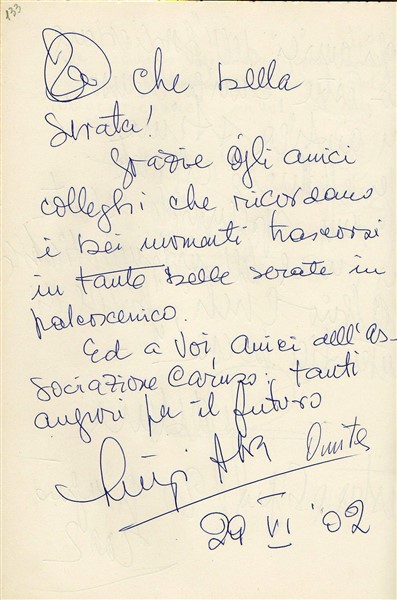 133
che bella
serata!
Grazie agli amici
colleghi che ricordano
i bei momenti trascorsi
in tante belle serate in
palcoscenico.
Ed a Voi, amici dell'As-
sociazione Caruso, tanti
auguri per il futuro
Luigi Alva
29 VI '02